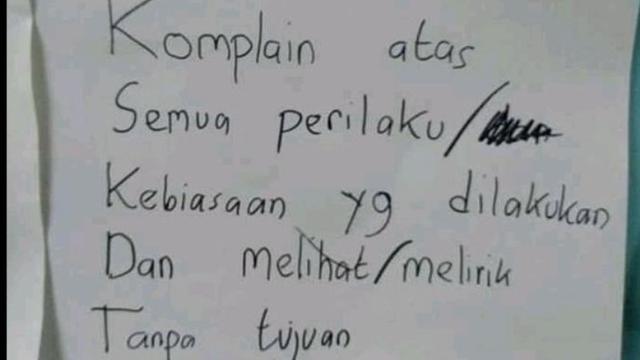 Komplain atas
Semua perilaku/
Kebiasaan yg dilakukan
Dan melihat/melirik
Tanpa tujuan